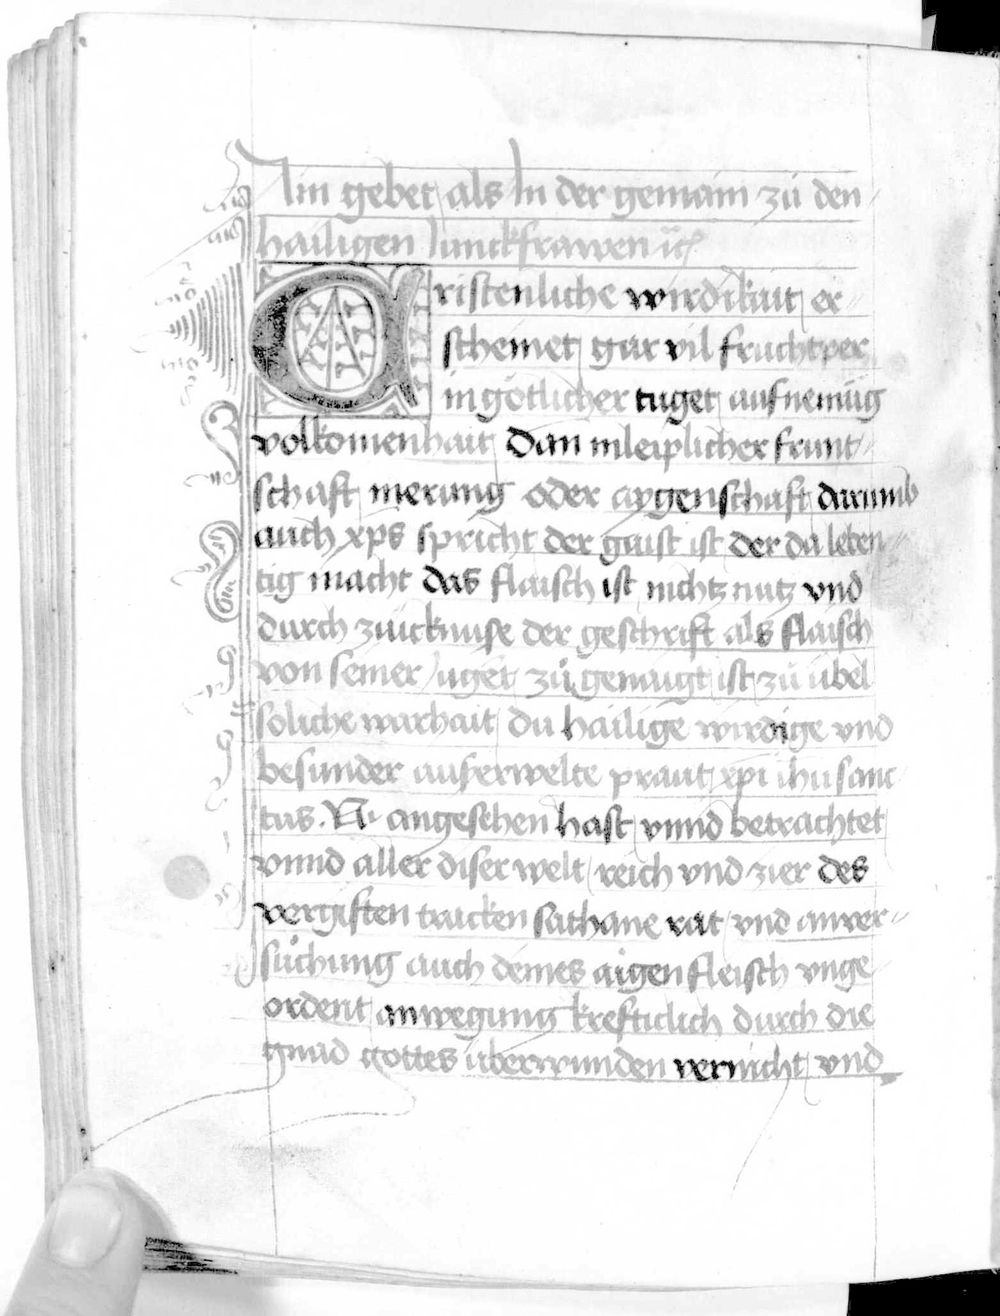 Im gebet als In der gemain zů den
hailigen Junckfrawen
Cristenliche wirdikait er
scheinet gar vil fruchtper
in götlicher tuget aufnemūg
volkomenhait Dan inleiplicher frunt
schaft merung oder aygenschaft darumb
auch xps spricht der gaist ist der da leben
tig macht das flaisch ist nichtz nutz vnd
durch zwicknuse der geschrift als flaisch
von seiner Juget zů genaigt ist zů übel
soliche warhait du hailige wirdige vnd
besunder auserwelte praut xpi ihu sanc
tus .N. angesehen hast vnnd betrachtet
vnnd aller diser welt reich vnd zier des
vergiften tracken sathane rat vnd anver
sůchung auch deines aigen fleisch vnge
ordent anwegung krefticlich durch die
gnad gottes überwunden vernicht vnd